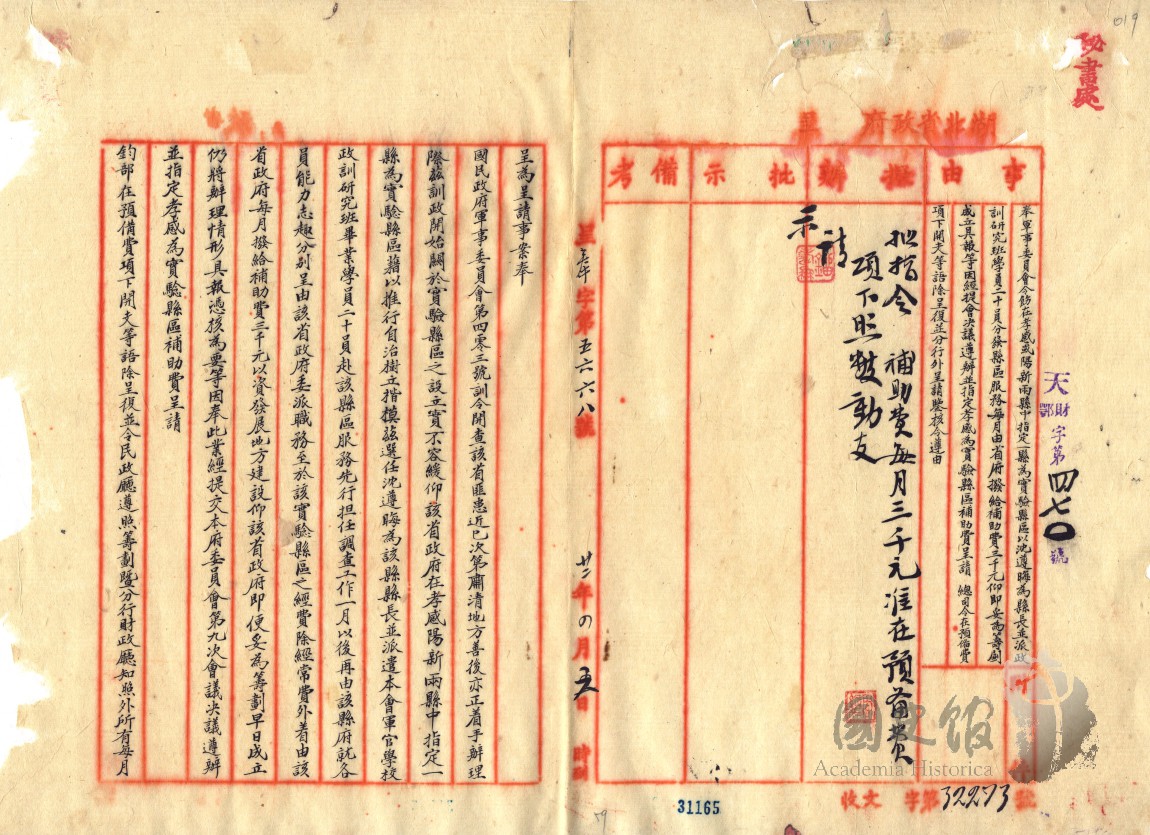 019
秘書處
湖北省政府 呈
事由
擬辦
批示
備考
奉軍事委員會令飭在孝感或陽新兩縣中指定一縣為實驗縣區以沈遵晦為縣長並派政
訓研究班學員二十員分發縣區服務每月由省府撥給補助費三千元仰即妥為籌劃
成立具報等因經提會决議遵辦並指定孝感為實驗縣區補助費呈請 總司令在預備費
項下開支等語除呈復並分行外呈請鑒核令遵由
擬指令 補助費每月三千元准在預备費
項下照數動支
請
示
天財鄂字第四七〇號
件
收文字第32273號
31165
字第五六六八號
廿二年四月五日 時
呈為呈請事案奉
國民政府軍事委員會第四零三號訓令開查該省匪患近已次第肅清地方善後亦正着手辦理
際茲訓政開始關於實驗縣區之設立實不容緩仰該省政府在孝感陽新兩縣中指定一
縣為實驗縣區藉以推行自治樹立楷模茲選任沈遵晦為該縣縣長並派遣本會軍官學校
政訓研究班畢業學員二十員赴該縣區服務先行担任調查工作一月以後再由該縣府就各
員能力志趣分别呈由該省政府委派職務至於該實驗縣區之經費除經常費外着由該
省政府每月撥給補助費三千元以資發展地方建設仰該省政府即便妥為籌劃早日成立
仍將辦理情形具報憑核為要等因奉此業經提交本府委員會第九次會議决議遵辦
並指定孝感為實驗縣區補助費呈請
鈞部在預備費項下開支等語除呈復並令民政廳遵照籌劃暨分行財政廳知照外所有每月
國史館
Academia Historica